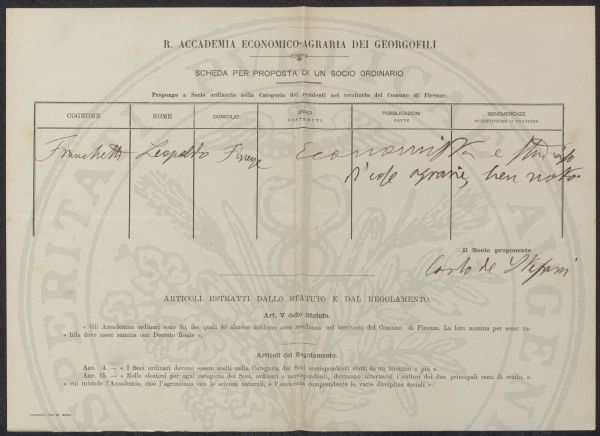 R. ACCADEMIA ECONOMICO-AGRARIA DEI GEORGOFILI
SCHEDA PER PROPOSTA DI UN SOCIO ORDINARIO
Propongo a Socio ordinario nella Categoria dei residenti nel territorio del Comune di Firenze:
COGNOME NOME DOMICILIO UFFICI SOSTENUTI PUBBLICAZIONI FATTE BENEMERENZE SCIENTIFICHE O PRATICHE
Franchetti Leopoldo Firenze Economista e studioso
di cose agrarie, ben noto
Il Socio proponente
Carlo de Stefani
ARTICOLI ESTRATTI DALLO STATUTO E DAL REGOLAMENTO.
Art. V dello Statuto.
« Gli Accademici ordinari sono 60, dei quali 40 almeno debbono aver residenza nel territorio del Comune di Firenze. La loro nomina per esser va-
« lida deve esser sancita con Decreto Reale ».
Articoli del Regolamento.
ART. 4. — « I Soci ordinari devono essere scelti nella Categoria dei Soci corrispondenti eletti da un triennio e più ».
ART. 15. — « Nelle elezioni per ogni categoria dei Soci, ordinari e corrispondenti, dovranno alternarsi i cultori dei due principali rami di studii, a
« cui intende l'Accademia, cioè l'agronomia con le scienze naturali, e l'economia comprendente le varie discipline sociali ».